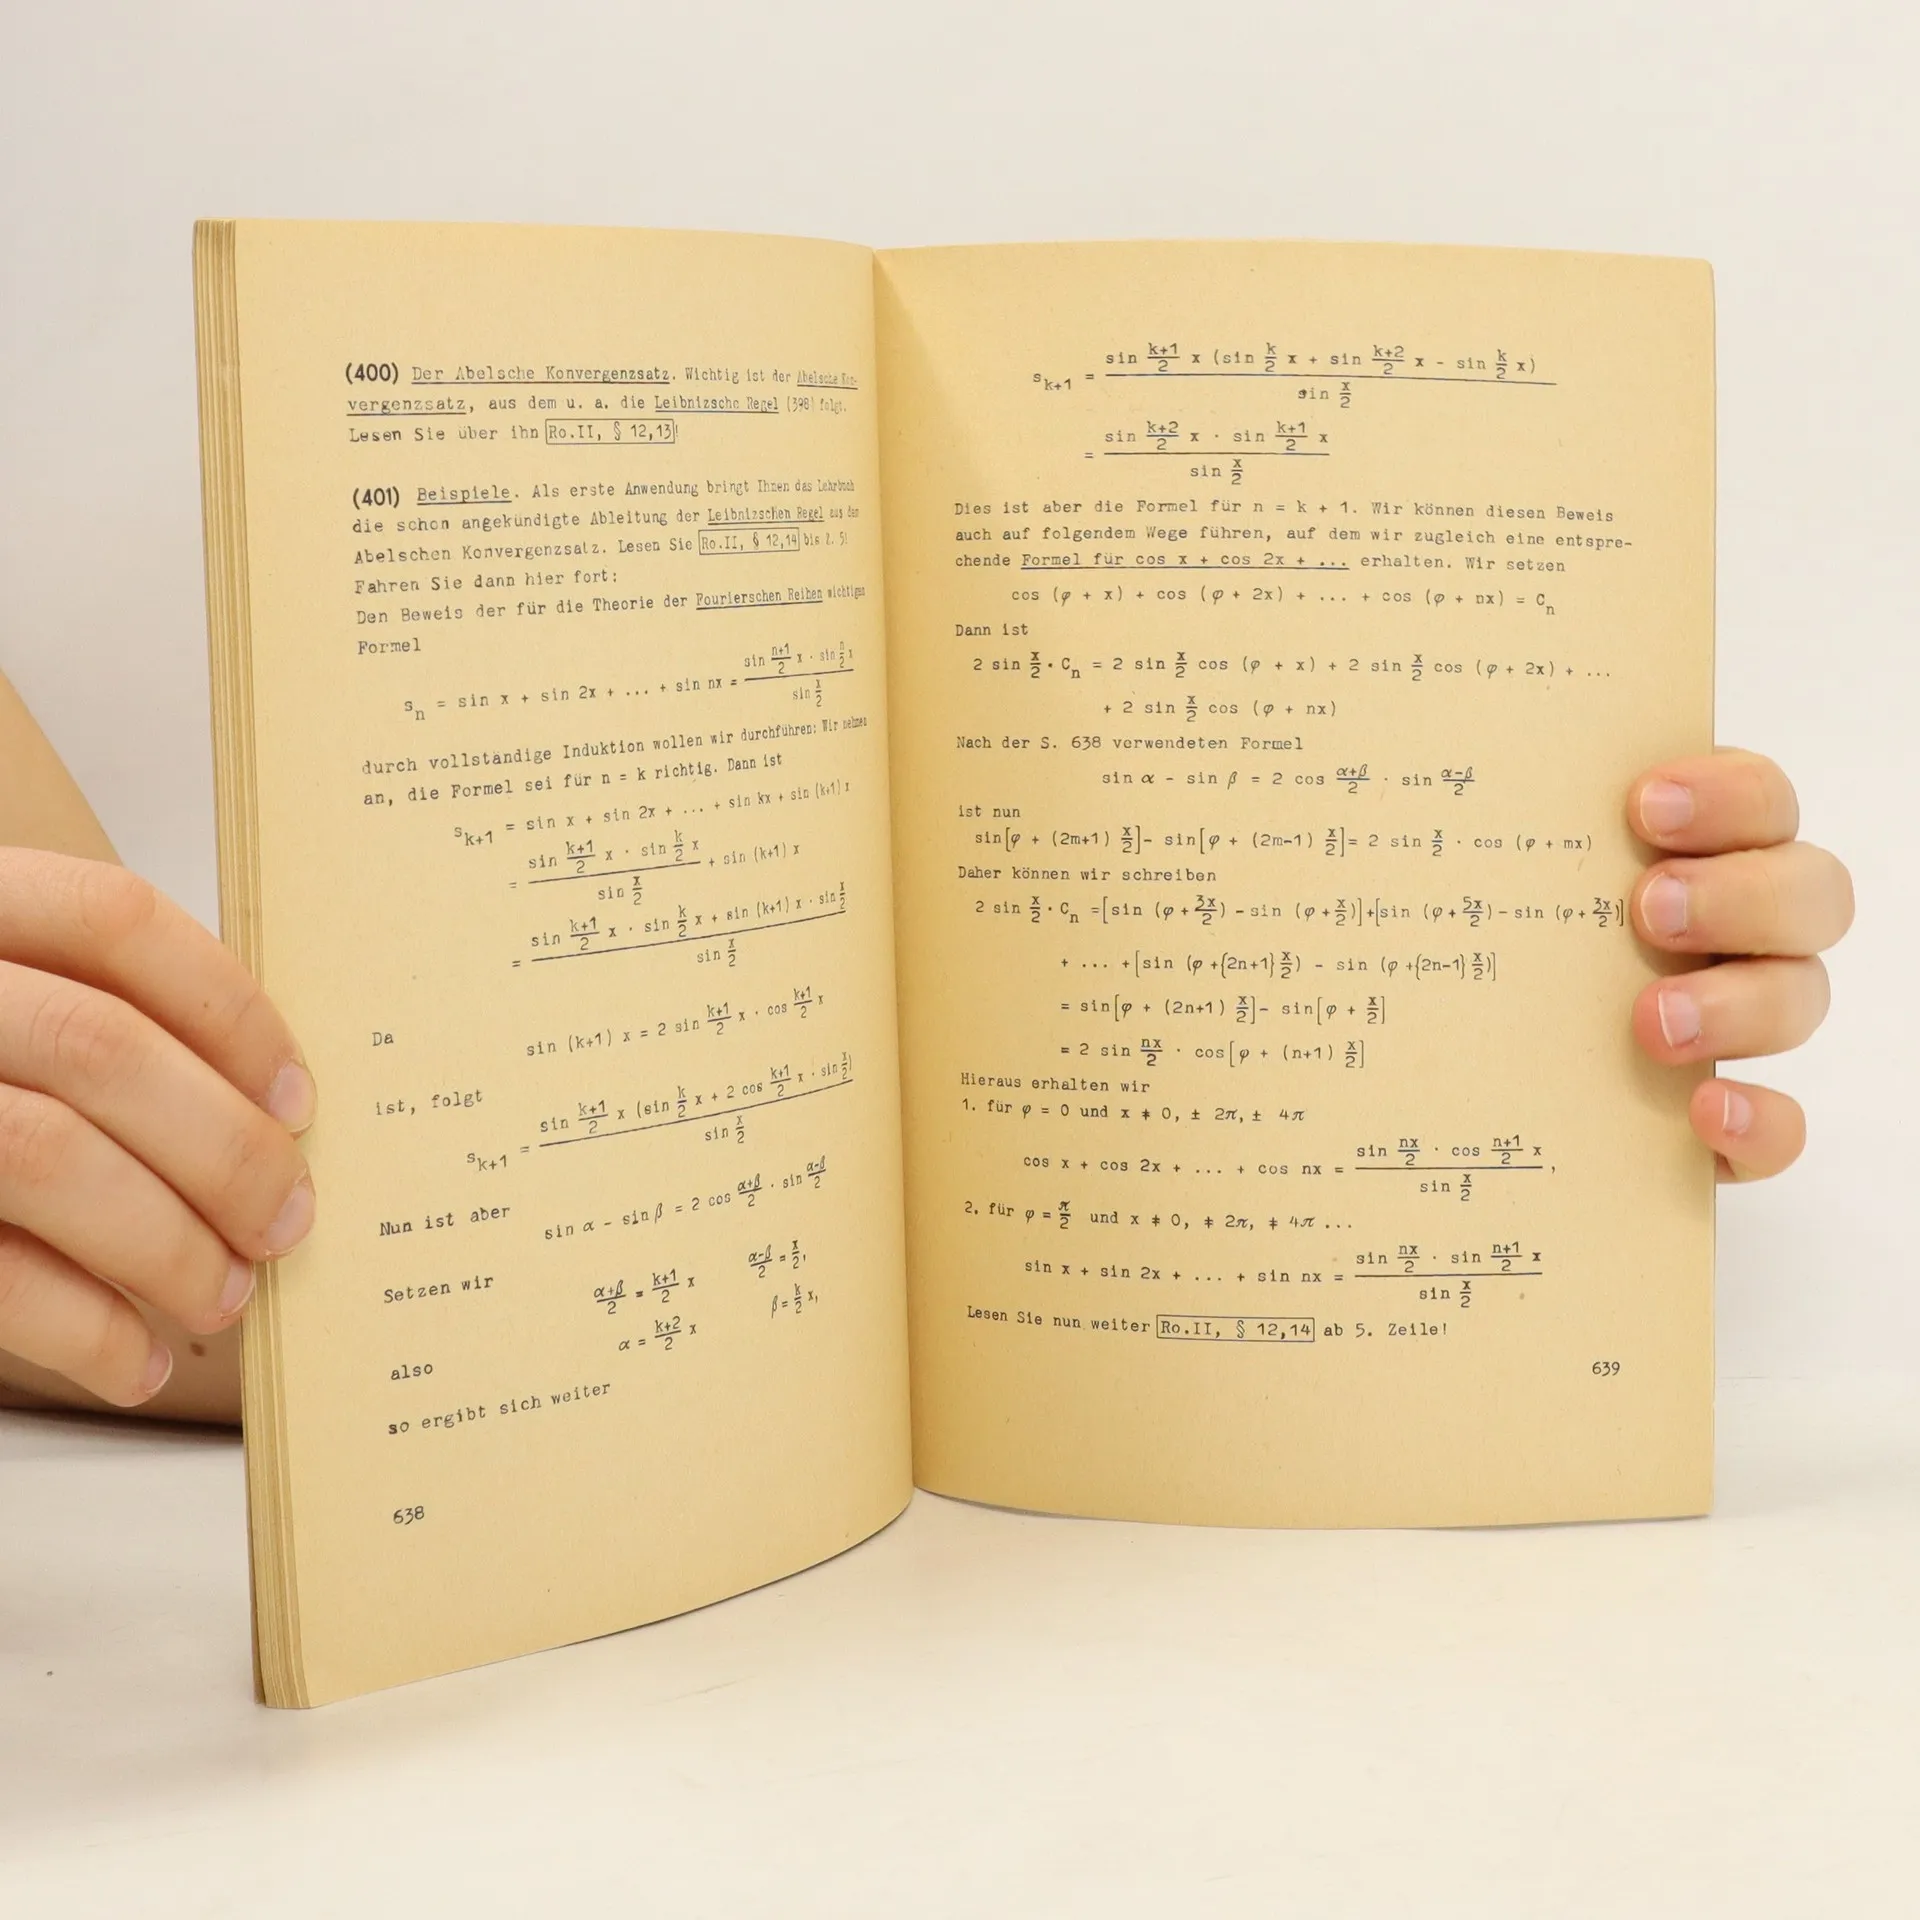 (400) Der Abelsche Konvergenzsatz. Wichtig ist der Abelsche Kon-
vergenzsatz, aus dem u. a. die Leibnizsche Regel (398) folgt.
Lesen Sie über ihn Ro.II, § 12,13!
(401) Beispiele. Als erste Anwendung bringt Ihnen das Lehrbuch
die schon angekündigte Ableitung der Leibnizschen Regel aus dem
Abelschen Konvergenzsatz. Lesen Sie Ro.II, § 12,14 bis Z. 5!
Fahren Sie dann hier fort:
Den Beweis der für die Theorie der Fourierschen Reihen wichtigen
Formel
s_n = sin x + sin 2x + ... + sin nx = (sin (n+1)/2 x · sin n/2 x) / (sin x/2)
durch vollständige Induktion wollen wir durchführen: Wir nehmen
an, die Formel sei für n = k richtig. Dann ist
s_k+1 = sin x + sin 2x + ... + sin kx + sin (k+1) x
= (sin (k+1)/2 x · sin k/2 x) / (sin x/2) + sin (k+1) x
= (sin (k+1)/2 x · sin k/2 x + sin (k+1) x · sin x/2) / (sin x/2)
Da sin (k+1) x = 2 sin (k+1)/2 x · cos (k+1)/2 x
ist, folgt
s_k+1 = (sin (k+1)/2 x (sin k/2 x + 2 cos (k+1)/2 x · sin x/2)) / (sin x/2)
Nun ist aber sin α - sin β = 2 cos (α+β)/2 · sin (α-β)/2
Setzen wir (α+β)/2 = (k+1)/2 x (α-β)/2 = x/2,
also α = (k+2)/2 x β = k/2 x,
so ergibt sich weiter
638
s_k+1 = (sin (k+1)/2 x (sin k/2 x + sin (k+2)/2 x - sin k/2 x)) / (sin x/2)
= (sin (k+2)/2 x · sin (k+1)/2 x) / (sin x/2)
Dies ist aber die Formel für n = k + 1. Wir können diesen Beweis
auch auf folgendem Wege führen, auf dem wir zugleich eine entspre-
chende Formel für cos x + cos 2x + ... erhalten. Wir setzen
cos (φ + x) + cos (φ + 2x) + ... + cos (φ + nx) = C_n
Dann ist
2 sin x/2 · C_n = 2 sin x/2 cos (φ + x) + 2 sin x/2 cos (φ + 2x) + ...
+ 2 sin x/2 cos (φ + nx)
Nach der S. 638 verwendeten Formel
sin α - sin β = 2 cos (α+β)/2 · sin (α-β)/2
ist nun
sin[φ + (2m+1) x/2] - sin[φ + (2m-1) x/2] = 2 sin x/2 · cos (φ + mx)
Daher können wir schreiben
2 sin x/2 · C_n = [sin (φ + 3x/2) - sin (φ + x/2)] + [sin (φ + 5x/2) - sin (φ + 3x/2)]
+ ... + [sin (φ + {2n+1} x/2) - sin (φ + {2n-1} x/2)]
= sin[φ + (2n+1) x/2] - sin[φ + x/2]
= 2 sin nx/2 · cos[φ + (n+1) x/2]
Hieraus erhalten wir
1. für φ = 0 und x ≠ 0, ± 2π, ± 4π
cos x + cos 2x + ... + cos nx = (sin nx/2 · cos (n+1)/2 x) / (sin x/2),
2. für φ = π/2 und x ≠ 0, ≠ 2π, ≠ 4π ...
sin x + sin 2x + ... + sin nx = (sin nx/2 · sin (n+1)/2 x) / (sin x/2)
Lesen Sie nun weiter Ro.II, § 12,14 ab 5. Zeile!
639